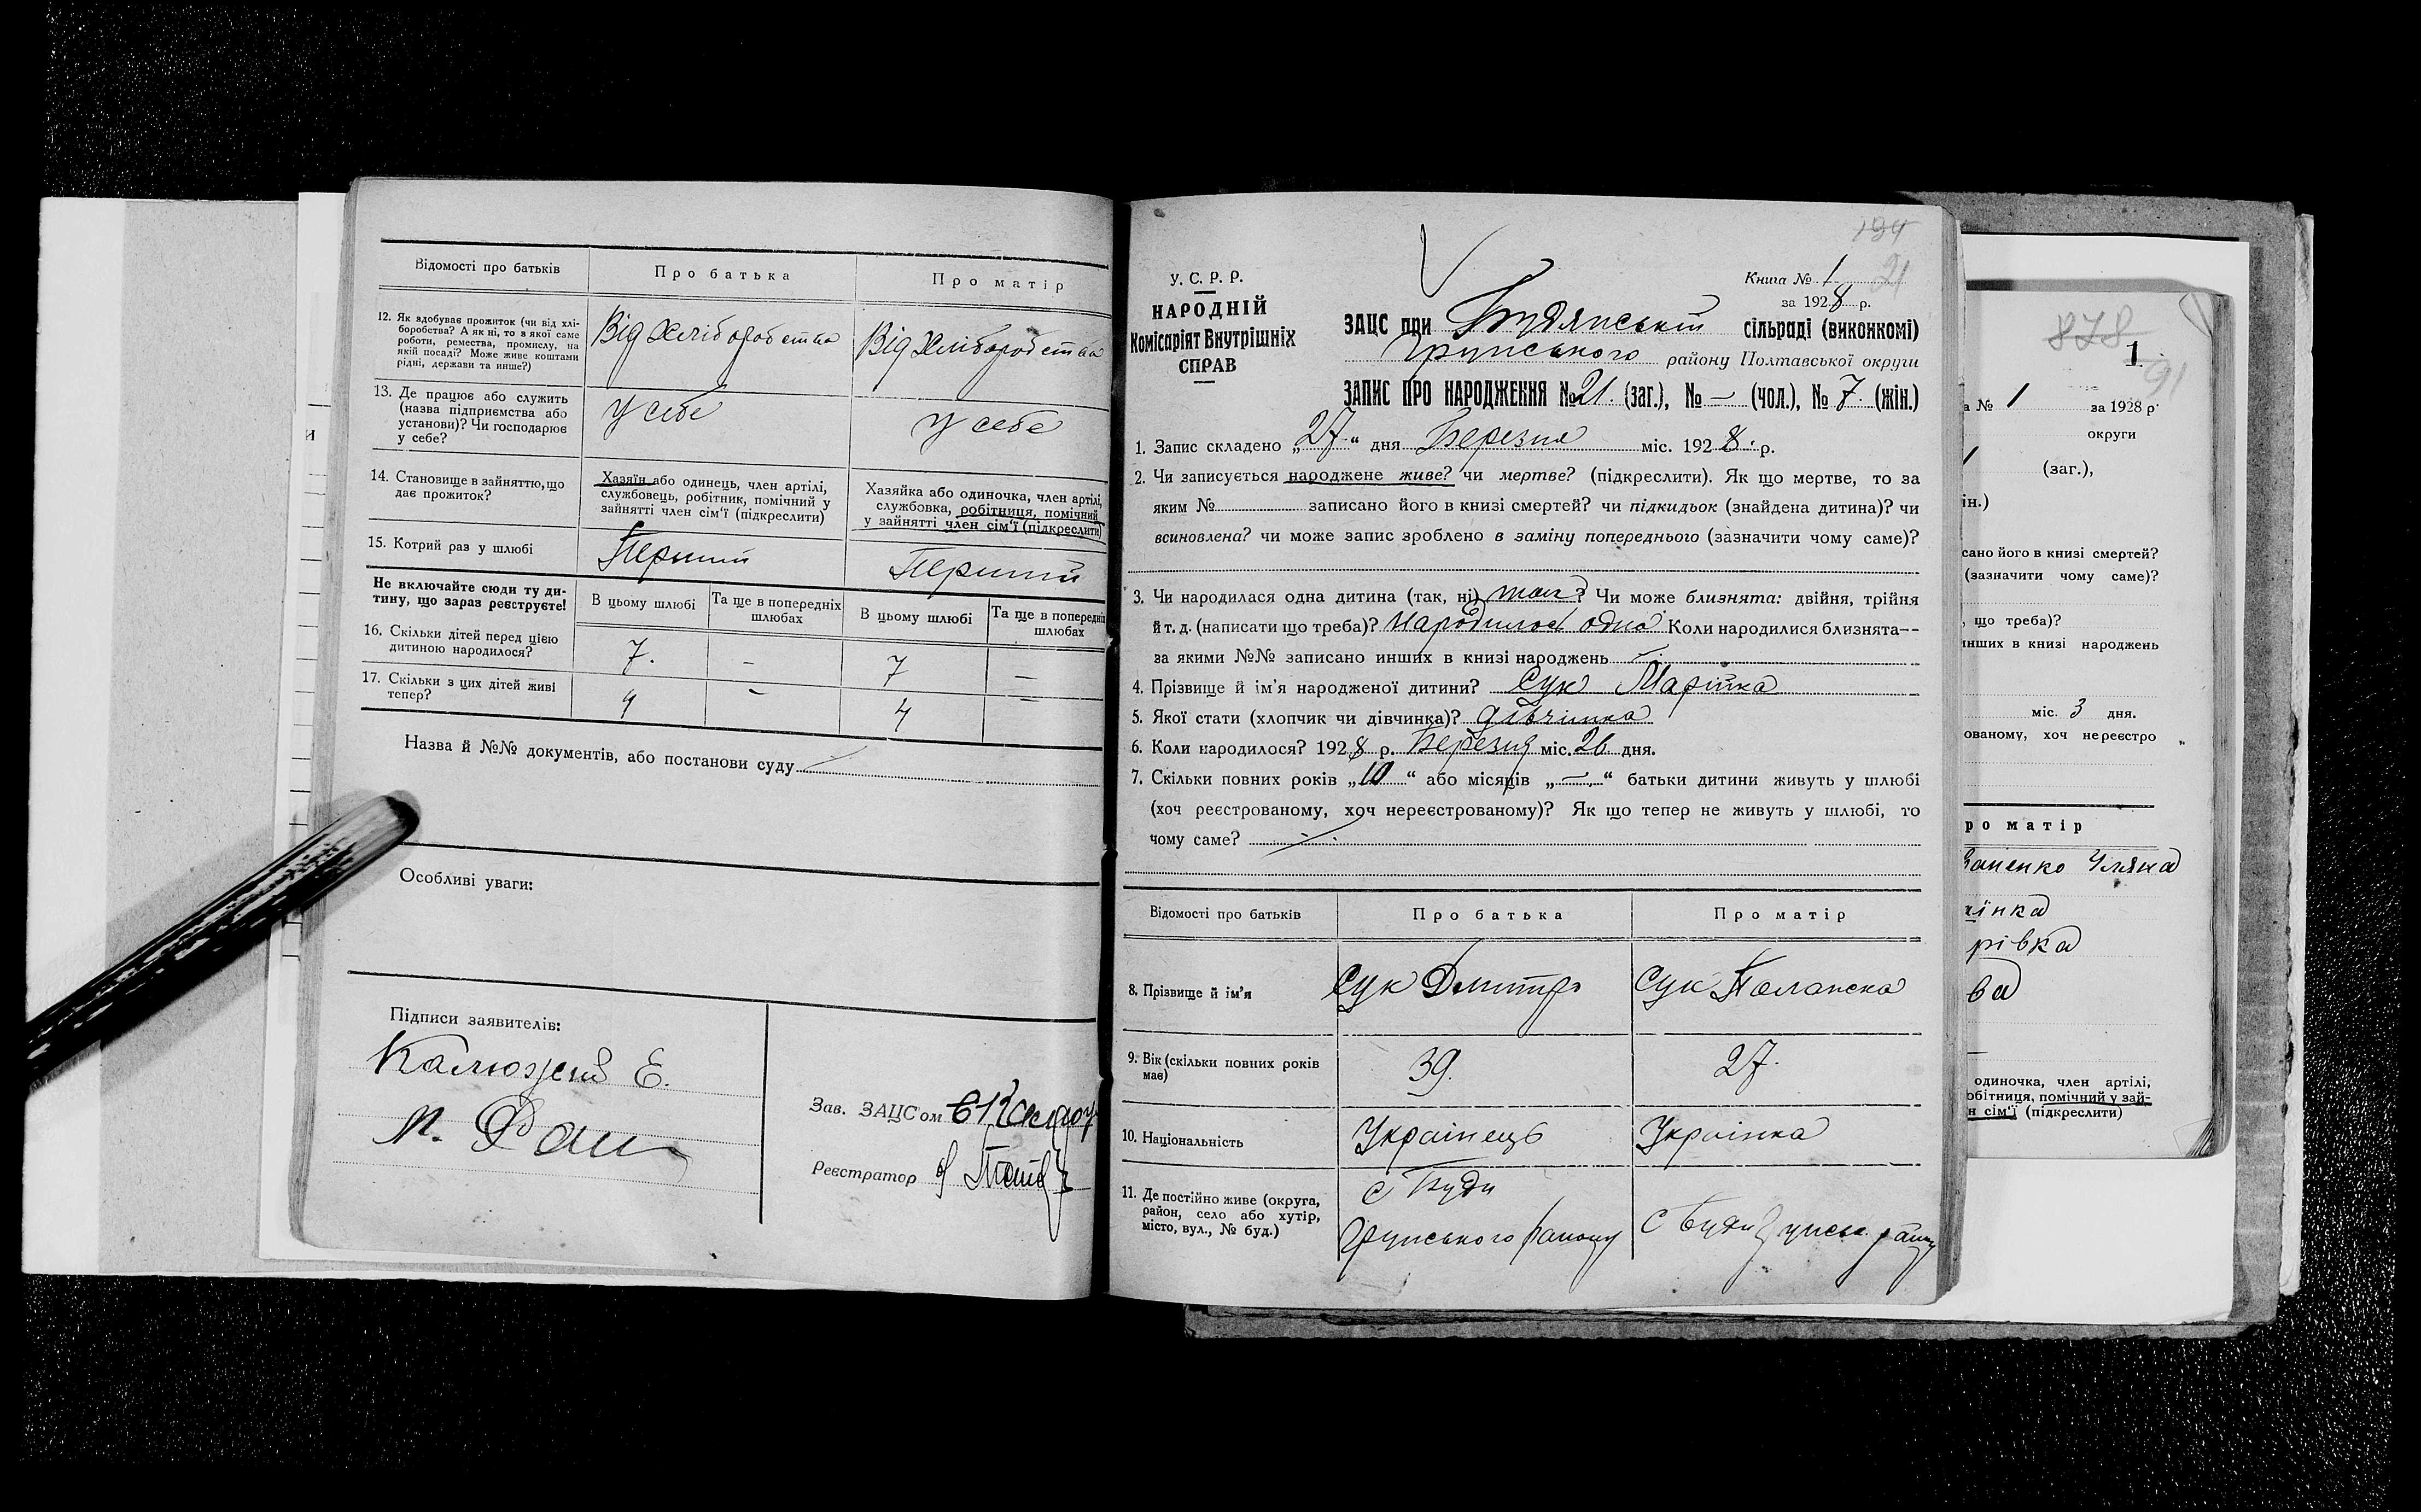 Відомості про батьків
Про батька
Про матір
12. Як здобуває прожиток (чи від хлі-
боробства? А як ні, то з якої саме
роботи, ремества, промислу, на
якій посаді? Може живе коштами
рідні, держави та инше?)
Від Хліборобства
Від Хліборобства
13. Де працює або служить
(назва підприємства або
установи)? Чи господарює
у себе?
У себе
У себе
14. Становище в зайняттю, що
дає прожиток?
Хазяїн або одинець, член артілі,
службовець, робітник, помічний у
зайнятті член сім'ї (підкреслити)
Хазяйка або одиночка, член артілі,
службовка, робітниця, помічний
у зайнятті член сім'ї (підкреслити)
15. Котрий раз у шлюбі
Перший
Перший
Не включайте сюди ту ди-
тину, що зараз реєструєте!
В цьому шлюбі
Та ще в попередніх
шлюбах
В цьому шлюбі
Та ще в попередніх
шлюбах
16. Скільки дітей перед цією
дитиною народилося?
7.
–
7
–
17. Скільки з цих дітей живі
тепер?
4
–
4
–
Назва й №№ документів, або постанови суду
Особливі уваги:
Підписи заявителів:
Калюжний Е.
Зав. ЗАЦС'ом
Реєстратор
194
21
У. С. Р. Р.
НАРОДНІЙ
Комісаріят Внутрішніх
СПРАВ
Книга № 1
за 1928 р.
ЗАЦС при Будянській сільраді (виконкомі)
Грунського району Полтавської округи
ЗАПИС ПРО НАРОДЖЕННЯ № 21. (заг.), № – (чол.), № 7. (жін.)
1. Запис складено „27“ дня Березня міс. 1928 р.
2. Чи записується народжене живе? чи мертве? (підкреслити). Як що мертве, то за
яким № записано його в книзі смертей? чи підкидьок (знайдена дитина)? чи
всиновлена? чи може запис зроблено в заміну попереднього (зазначити чому саме)?
3. Чи народилася одна дитина (так, ні) так? Чи може близнята: двійня, трійня
й т. д. (написати що треба)? Народилось одно Коли народилися близнята—
за якими №№ записано инших в книзі народжень –
4. Прізвище й ім'я народженої дитини? Сук Марійка
5. Якої стати (хлопчик чи дівчинка)? дівчинка
6. Коли народилося? 1928 р. Березня міс. 26 дня.
7. Скільки повних років „10“ або місяців „–“ батьки дитини живуть у шлюбі
(хоч реєстрованому, хоч нереєстрованому)? Як що тепер не живуть у шлюбі, то
чому саме?
Відомості про батьків
Про батька
Про матір
8. Прізвище й ім'я
Сук Дмитро
Сук Паланска
9. Вік (скільки повних років
має)
39.
27.
10. Національність
Українець
Українка
11. Де постійно живе (округа,
район, село або хутір,
місто, вул., № буд.)
с Буди
Грунського району
с Буди
878
1
91
а № 1 за 1928 р.
округи
(заг.),
ін.)
сано його в книзі смертей?
(зазначити чому саме)?
, що треба)?
инших в книзі народжень
міс. 3 дня.
ованому, хоч нереєстро
ро матір
Уляна
їнка
рівка
ва
одиночка, член артілі,
обітниця, помічний у зай-
н сім'ї (підкреслити)